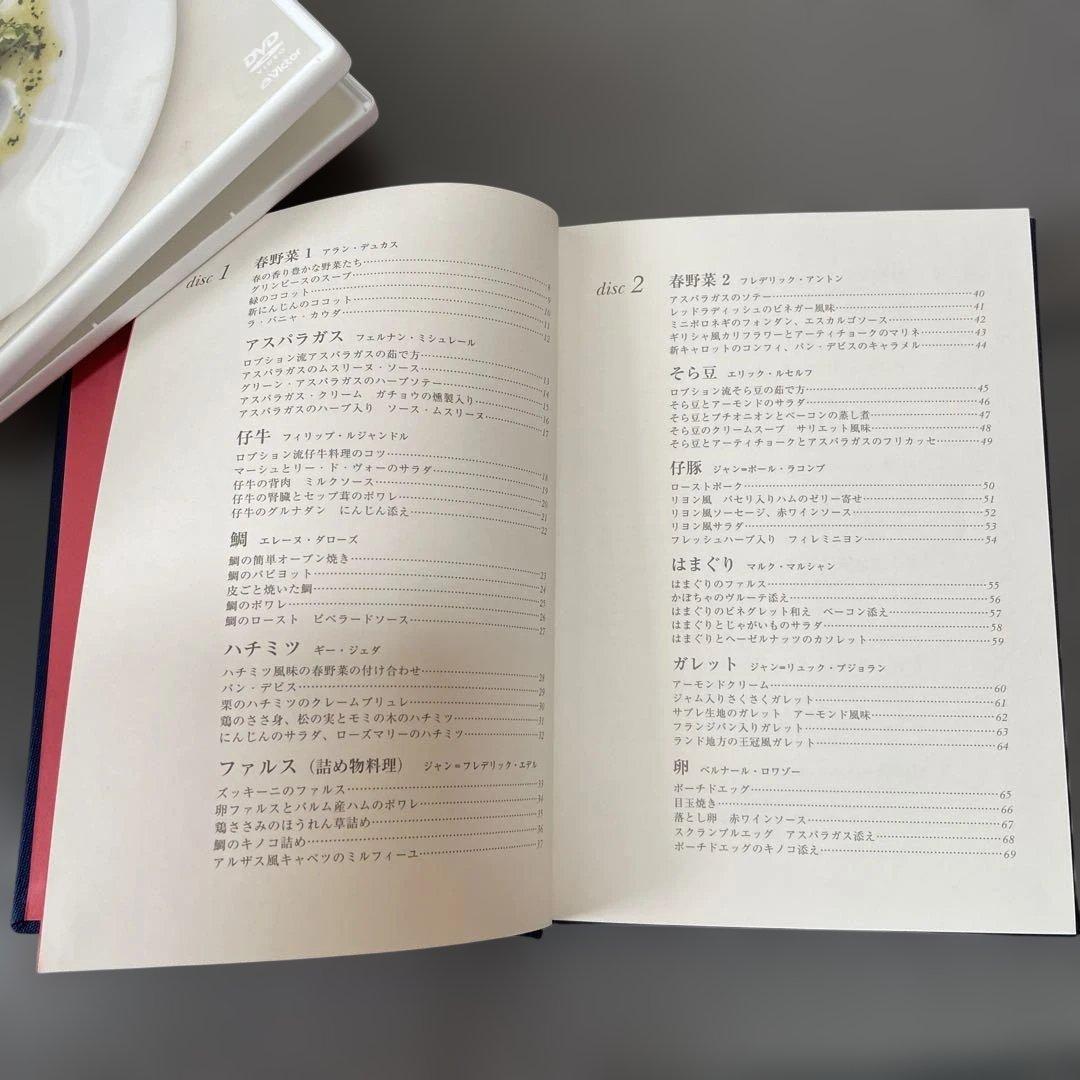 DVD
VIDEO
Victor
disc 1
春野菜 1 アラン・デュカス
春の香り豊かな野菜たち 8
グリンピースのスープ 9
緑のココット 10
新にんじんのココット 11
ラ・バニャ・カウダ 12
アスパラガス フェルナン・ミシュレール
ロブション流アスパラガスの茹で方 13
アスパラガスのムスリーヌ・ソース 14
グリーン・アスパラガスのハーブソテー 15
アスパラガス・クリーム ガチョウの燻製入り 16
アスパラガスのハーブ入り ソース・ムスリーヌ 17
仔牛 フィリップ・ルジャンドル
ロブション流仔牛料理のコツ 18
マーシュとリー・ド・ヴォーのサラダ 19
仔牛の背肉 ミルクソース 20
仔牛の腎臓とセップ茸のポワレ 21
仔牛のグルナダン にんじん添え 22
鯛 エレーヌ・ダローズ
鯛の簡単オーブン焼き 23
鯛のパピヨット 24
皮ごと焼いた鯛 25
鯛のポワレ 26
鯛のロースト ピペラードソース 27
ハチミツ ギー・ジェダ
ハチミツ風味の春野菜の付け合わせ 28
パン・デピス 29
栗のハチミツのクレームブリュレ 30
鶏のささ身、松の実とモミの木のハチミツ 31
にんじんのサラダ、ローズマリーのハチミツ 32
ファルス（詰め物料理） ジャン=フレデリック・エデル
ズッキーニのファルス 33
卵ファルスとパルム産ハムのポワレ 34
鶏ささみのほうれん草詰め 35
鯛のキノコ詰め 36
アルザス風キャベツのミルフィーユ 37
disc 2
春野菜 2 フレデリック・アントン
アスパラガスのソテー 40
レッドラディッシュのビネガー風味 41
ミニポロネギのフォンダン、エスカルゴソース 42
ギリシャ風カリフラワーとアーティチョークのマリネ 43
新キャロットのコンフィ、パン・デピスのキャラメル 44
そら豆 エリック・ルセルフ
ロブション流そら豆の茹で方 45
そら豆とアーモンドのサラダ 46
そら豆とプチオニオンとベーコンの蒸し煮 47
そら豆のクリームスープ サリエット風味 48
そら豆とアーティチョークとアスパラガスのフリカッセ 49
仔豚 ジャン=ポール・ラコンブ
ローストポーク 50
リヨン風 パセリ入りハムのゼリー寄せ 51
リヨン風ソーセージ、赤ワインソース 52
リヨン風サラダ 53
フレッシュハーブ入り フィレミニヨン 54
はまぐり マルク・マルシャン
はまぐりのファルス 55
かぼちゃのヴルーテ添え 56
はまぐりのビネグレット和え ベーコン添え 57
はまぐりとじゃがいものサラダ 58
はまぐりとヘーゼルナッツのカソレット 59
ガレット ジャン=リュック・プジョラン
アーモンドクリーム 60
ジャム入りさくさくガレット 61
サブレ生地のガレット アーモンド風味 62
フランジパン入りガレット 63
ランド地方の王冠風ガレット 64
卵 ベルナール・ロワゾー
ポーチドエッグ 65
目玉焼き 66
落とし卵 赤ワインソース 67
スクランブルエッグ アスパラガス添え 68
ポーチドエッグのキノコ添え 69